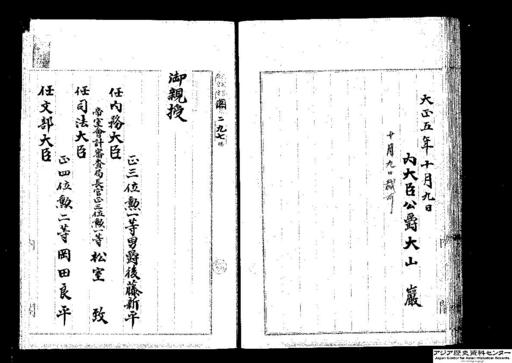 大正五年十月九日
内大臣公爵大山巖
十月九日
御親授
任内務大臣
正三位勲一等男爵後藤新平
任司法大臣
帝室會計審査局長官正三位勲一等松室致
任文部大臣
正四位勲二等岡田良平
二九七
アジア歴史資料センター
Japan Center for Asian Historical Records